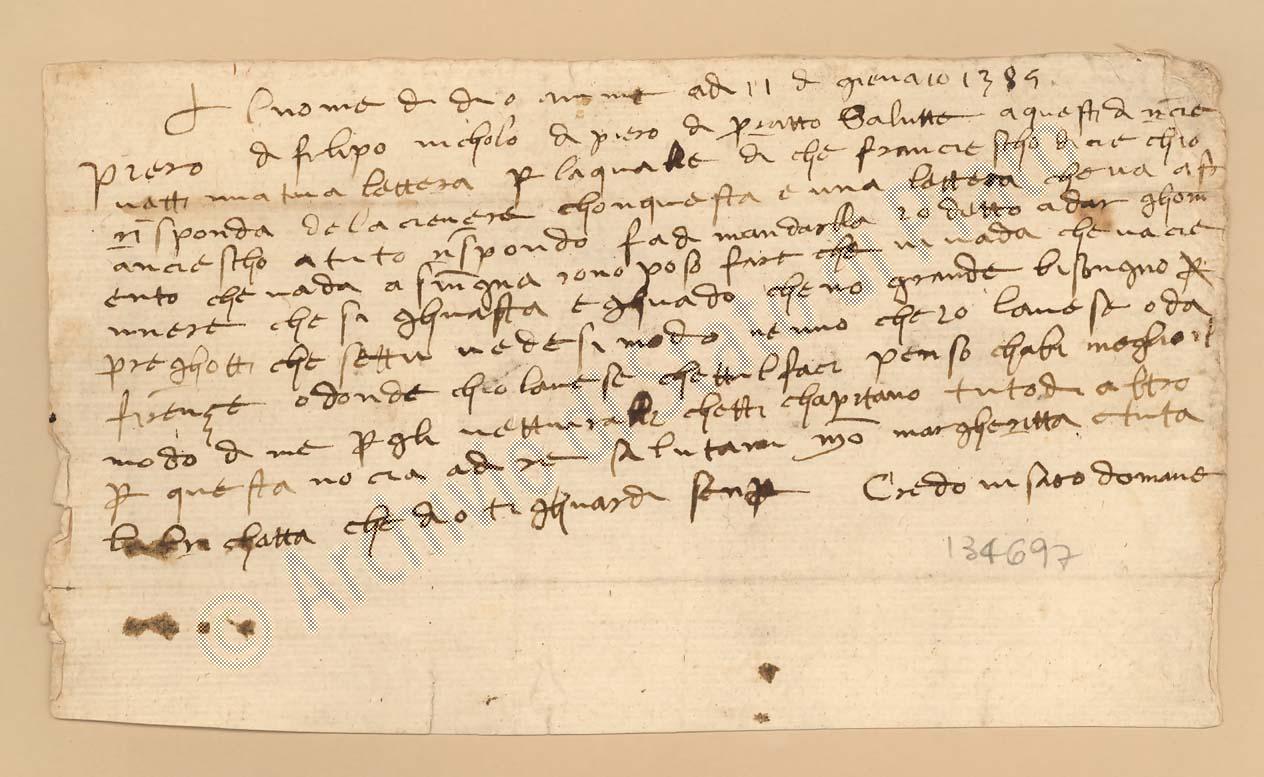 ✝ Inome di dio amme adi 11 di gienaio 1385
Piero di filipo nicholo di piero di pratto Salutte a questi di ricie
vetti una tua lettera p la quale di che franciescho dicie chio
risponda de la cienere chonquesta e una lettera che va a fr
anciescho a tuto rispondo fa di mandarlla io detto a dar
ento che vada a io no poso fare che vi vada che va cie
nnere che si ghuasta e ghuado che no grande bisongno p
preghotti che settu vedesi modo venno che io lavese o da
firenze o donde chio lavese chettulfaci penso chabi meglio il
modo di me p gli vetturalli chetti chapitano tuto di altro
p questa nocia a dire salutami mo margheritta e tuta
la brichatta che dio ti ghuardi senp Credo vi saro domane
134697
© Archivio di Stato di Prato